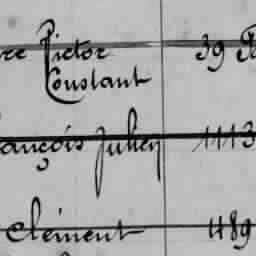 re Victor 39
Constant
ançois Julien 1113
Clément 489